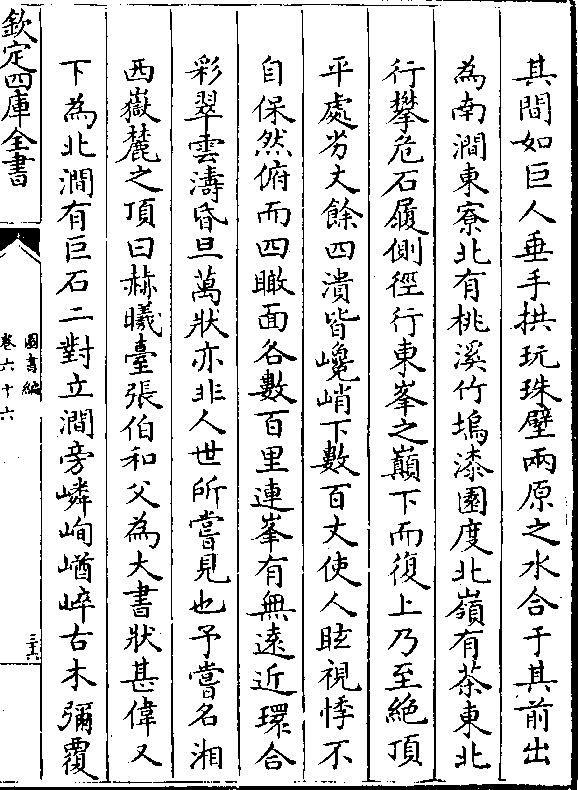 其間如巨人垂手拱玩珠壁兩原之水合于其前出
為南澗東寮北有桃溪竹塢漆園度北嶺有茶東北
行攀危石履側徑行東峯之巔下而復上乃至絶頂
平處劣丈餘四潰皆巉峭下數百丈使人眩視悸不
自保然俯而四瞰面各數百里連峯有無遠近環合
彩翠雲濤昏旦萬狀亦非人世所嘗見也予嘗名湘
西嶽麓之頂曰赫曦臺張伯和父為大書狀甚偉又
下為北澗有巨石二對立澗旁嶙峋崷崪古木彌覆
欽定四庫全書
圖書編
卷六十六
三六